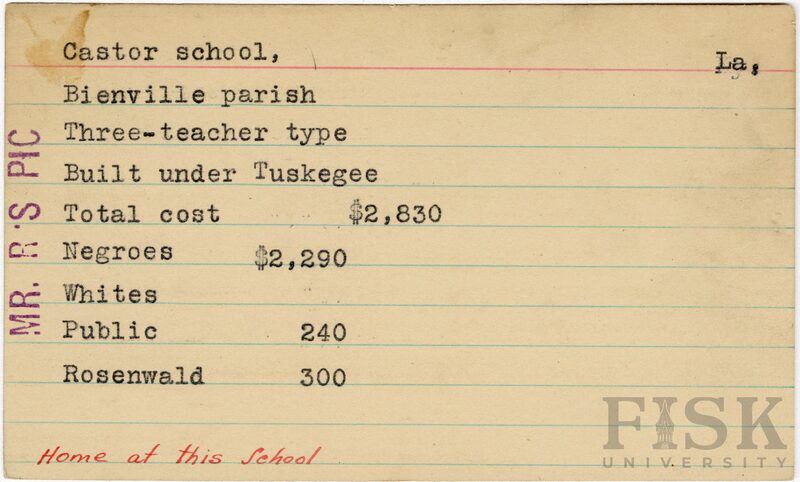 Castor school,
La,
Bienville parish
Three-teacher type
Built under Tuskegee
Total cost $2,830
Negroes $2,290
Whites
Public 240
Rosenwald 300
Home at this School
MR. R'S PIC
FISK
UNIVERSITY